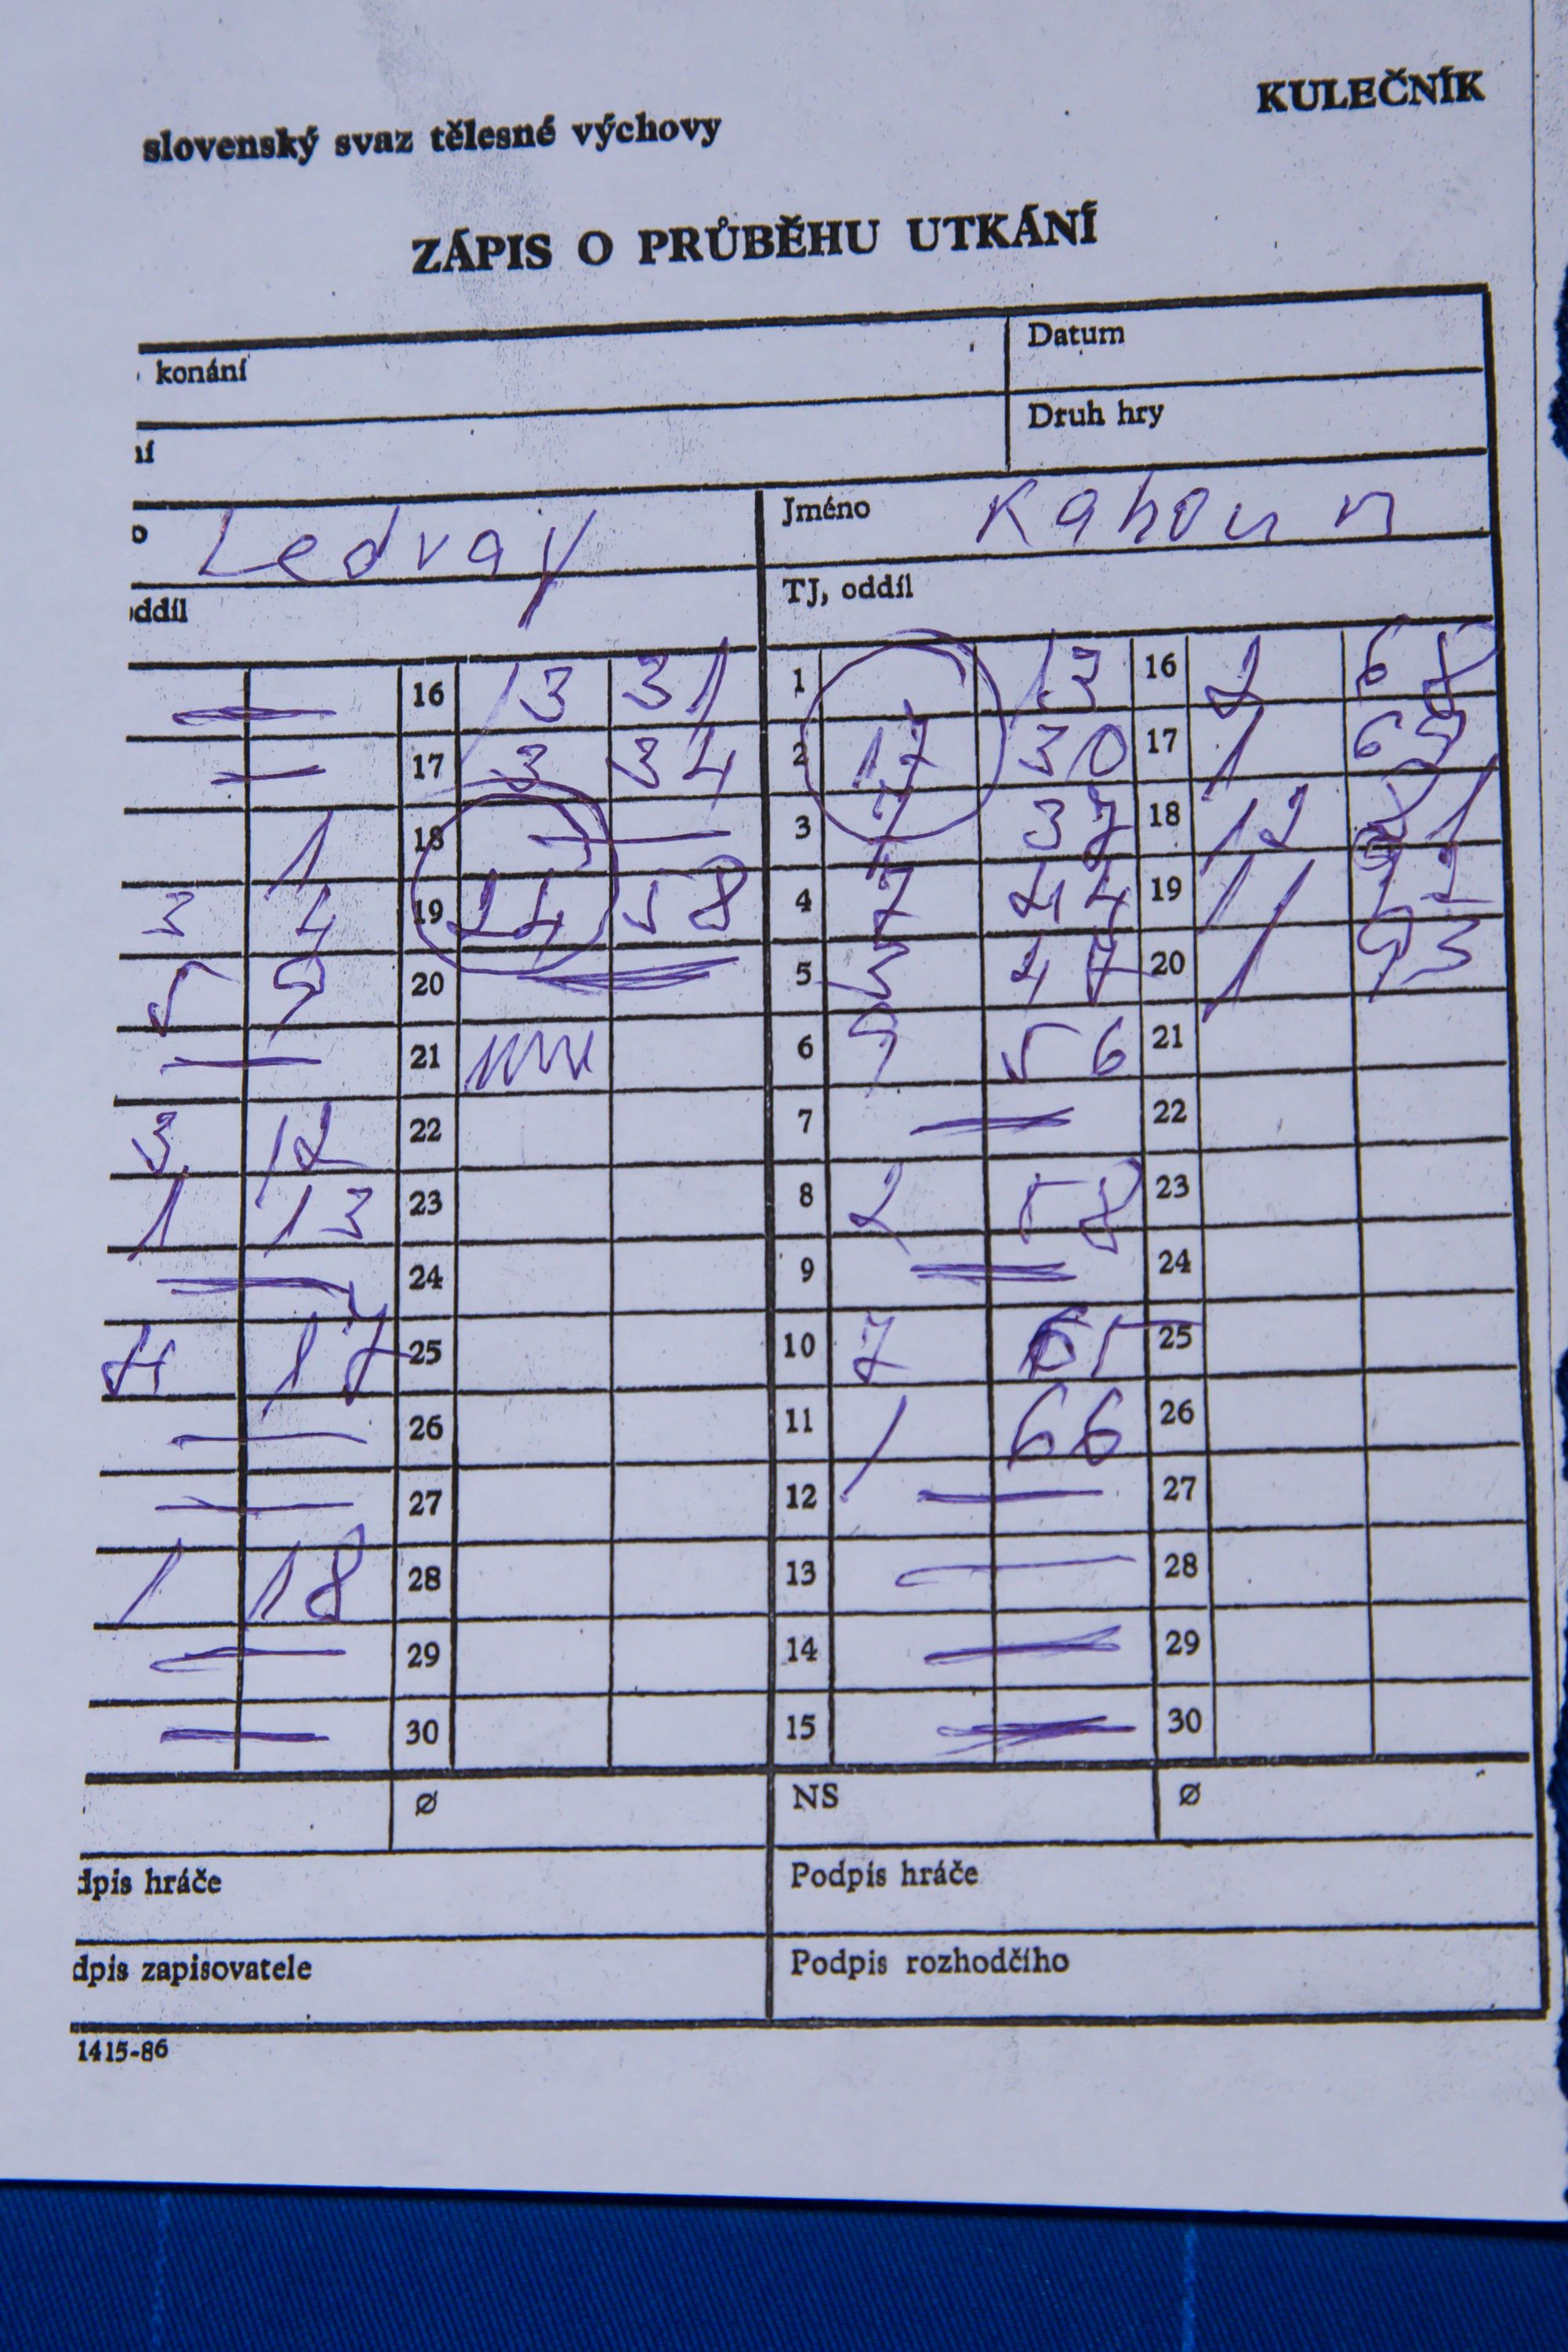 KULEČNÍK
slovenský svaz tělesné výchovy
ZÁPIS O PRŮBĚHU UTKÁNÍ
konání Datum
ní Druh hry
o Ledvay Jméno Kahoun
oddíl TJ, oddíl
— 16 13 31 1 13 16 2 68
— 17 3 34 2 17 30 17 1 69
1 18 — 3 7 37 18 12 81
3 4 19 24 58 4 7 44 19 11 92
5 9 20 — 5 3 47 20 1 93
— 21 6 9 56 21
3 12 22 7 — 22
1 13 23 8 2 58 23
— 24 9 — 24
4 17 25 10 7 65 25
— 26 11 1 66 26
— 27 12 — 27
1 18 28 13 — 28
— 29 14 — 29
— 30 15 — 30
Ø NS Ø
dpis hráče Podpis hráče
dpis zapisovatele Podpis rozhodčího
1415-86